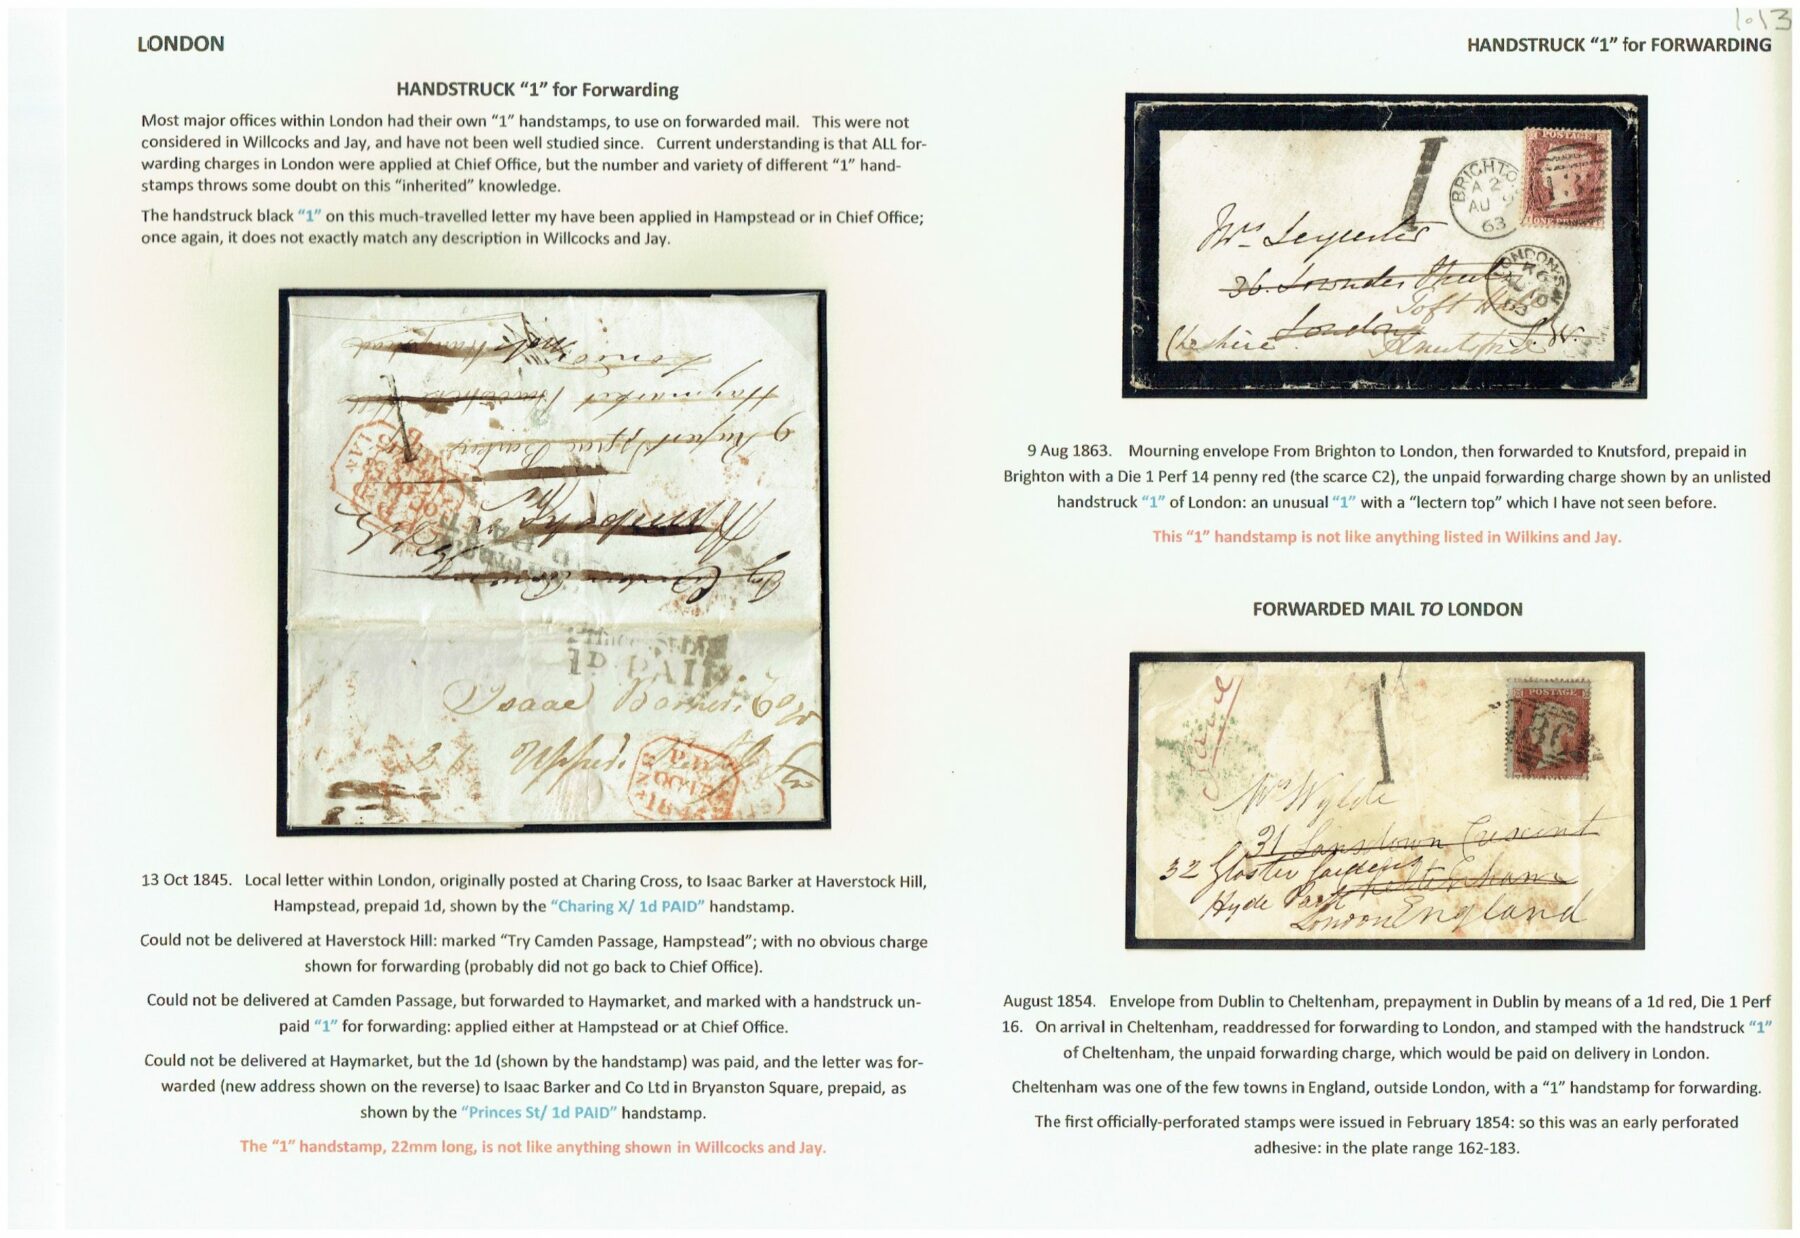 1.13
LONDON
HANDSTRUCK “1” for FORWARDING
HANDSTRUCK “1” for Forwarding
Most major offices within London had their own “1” handstamps, to use on forwarded mail. This were not
considered in Willcocks and Jay, and have not been well studied since. Current understanding is that ALL for-
warding charges in London were applied at Chief Office, but the number and variety of different “1” hand-
stamps throws some doubt on this “inherited” knowledge.
The handstruck black “1” on this much-travelled letter my have been applied in Hampstead or in Chief Office;
once again, it does not exactly match any description in Willcocks and Jay.
London
Haymarket
9 Rupert
1
1d PAID
Isaac Barker
P.D.
13 Oct 1845. Local letter within London, originally posted at Charing Cross, to Isaac Barker at Haverstock Hill,
Hampstead, prepaid 1d, shown by the “Charing X/ 1d PAID” handstamp.
Could not be delivered at Haverstock Hill: marked “Try Camden Passage, Hampstead”; with no obvious charge
shown for forwarding (probably did not go back to Chief Office).
Could not be delivered at Camden Passage, but forwarded to Haymarket, and marked with a handstruck un-
paid “1” for forwarding: applied either at Hampstead or at Chief Office.
Could not be delivered at Haymarket, but the 1d (shown by the handstamp) was paid, and the letter was for-
warded (new address shown on the reverse) to Isaac Barker and Co Ltd in Bryanston Square, prepaid, as
shown by the “Princes St/ 1d PAID” handstamp.
The “1” handstamp, 22mm long, is not like anything shown in Willcocks and Jay.
1
POSTAGE
BRIGHTON
A 2
AU 9
63
Mrs Leycester
36 Lowndes Street
Toft Hall
London
Cheshire
Knutsford
S.W.
LONDON.S.W
63
9 Aug 1863. Mourning envelope From Brighton to London, then forwarded to Knutsford, prepaid in
Brighton with a Die 1 Perf 14 penny red (the scarce C2), the unpaid forwarding charge shown by an unlisted
handstruck “1” of London: an unusual “1” with a “lectern top” which I have not seen before.
This “1” handstamp is not like anything listed in Wilkins and Jay.
FORWARDED MAIL TO LONDON
1
POSTAGE
Mrs Wylde
31 Lansdown Crescent
32 Gloster Gardens
Cheltenham
Hyde Park
London England
August 1854. Envelope from Dublin to Cheltenham, prepayment in Dublin by means of a 1d red, Die 1 Perf
16. On arrival in Cheltenham, readdressed for forwarding to London, and stamped with the handstruck “1”
of Cheltenham, the unpaid forwarding charge, which would be paid on delivery in London.
Cheltenham was one of the few towns in England, outside London, with a “1” handstamp for forwarding.
The first officially-perforated stamps were issued in February 1854: so this was an early perforated
adhesive: in the plate range 162-183.